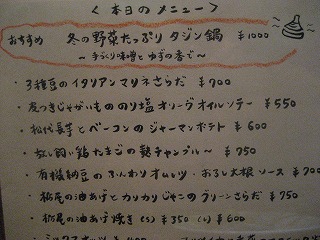 ＜本日のメニュー＞
おすすめ 冬の野菜たっぷり タジン鍋 ¥1000
〜手づくり味噌とゆずの香で〜
・3種豆のイタリアンマリネさらだ ¥700
・皮つきじゃがいもののり塩オリーヴオイルソテー ¥550
・松代長芋とベーコンのジャーマンポテト ¥600
・放し飼い鶏たまごの麩チャンプルー ¥750
・有機納豆のふんわりオムレツ・おろし大根ソース ¥700
・栃尾の油あげとカリカリじゃこのグリーンさらだ ¥750
・栃尾の油あげ焼き (S) ¥350 (L) ¥600